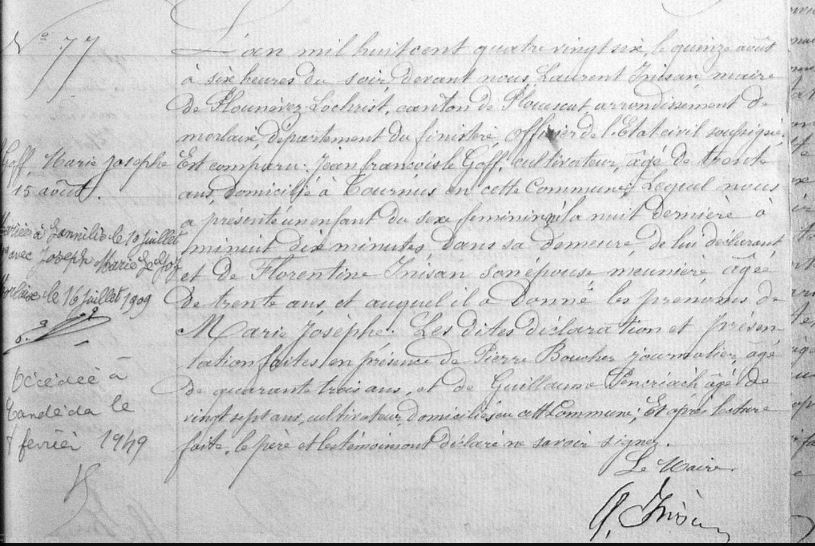 N° 77
Goff, Marie Josèphe
15 août.
à Lannilis le 10 juillet
avec Joseph Marie
le 16 juillet 1909
Décédée à
Landéda le
février 1949
L'an mil huit cent quatre vingt six, le quinze août
à six heures du soir, devant nous, Laurent Inisan maire
de Plounévez Lochrist, canton de Plouescat arrondissement de
morlaix, département du finistère, officier de l'Etat civil soussigné
Est comparu: Jean françois le Goff, cultivateur, âgé de trente
ans, domicilié à Tournus en cette Commune, Lequel nous
a présenté un enfant du sexe féminin, né la nuit dernière à
minuit dix minutes, dans sa demeure, de lui déclarant
et de Florentine Inisan son épouse meunière âgée
de trente ans, et auquel il a donné les prénoms de
Marie Josèphe. Les dites déclaration et présen
tation faites en présence de Pierre Boucher journalier, âgé
de quarante trois ans, et de Guillaume âgé de
vingt sept ans, cultivateur, domiciliés en cette Commune; Et après lecture
faite, le père et les témoins ont déclaré ne savoir signer.
Le Maire
Inisan